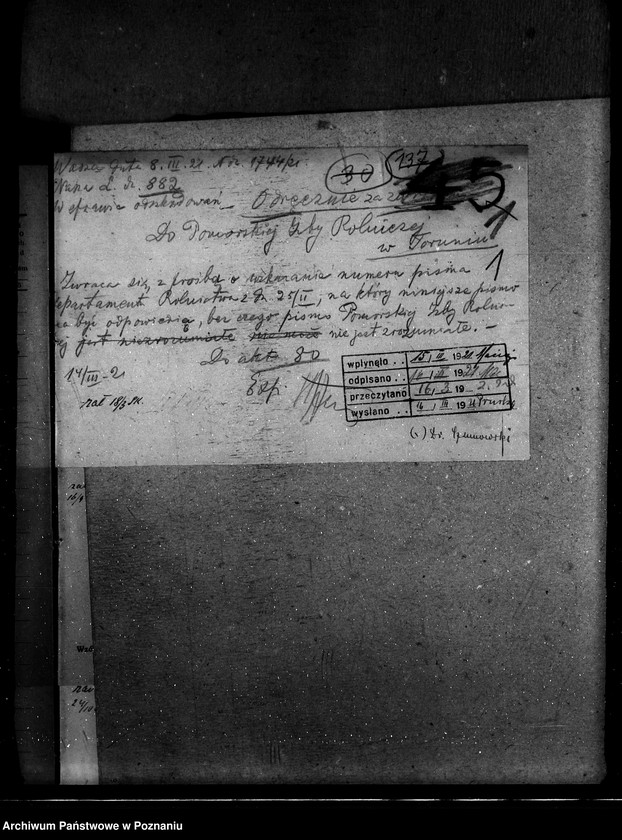 8. III. 21. Nr. 1744/21.
30 137
L. dz. 882
45
W sprawie odszkodowań. Odręcznie za
Do Pomorskiej Izby Rolniczej
w Toruniu
1
Zwraca się z prośbą o wskazanie numeru pisma
Departament Rolnictwa z dn 25/II, na który niniejsze pismo
ma być odpowiedzią, bez czego pismo Pomorskiej Izby Rolni-
ej jest niezrozumiałe nie jest zrozumiałe. -
Do akt 80
14/III - 21
Exp.
zał 18/3 SK.
wpłynęło . . 15, III 1921
odpisano . . 16, III 1921
przeczytano 16, 3 19
wysłano . . 16, III 1921
(-) Dr.
16/9
Wzd
24/10
Archiwum Państwowe w Poznaniu